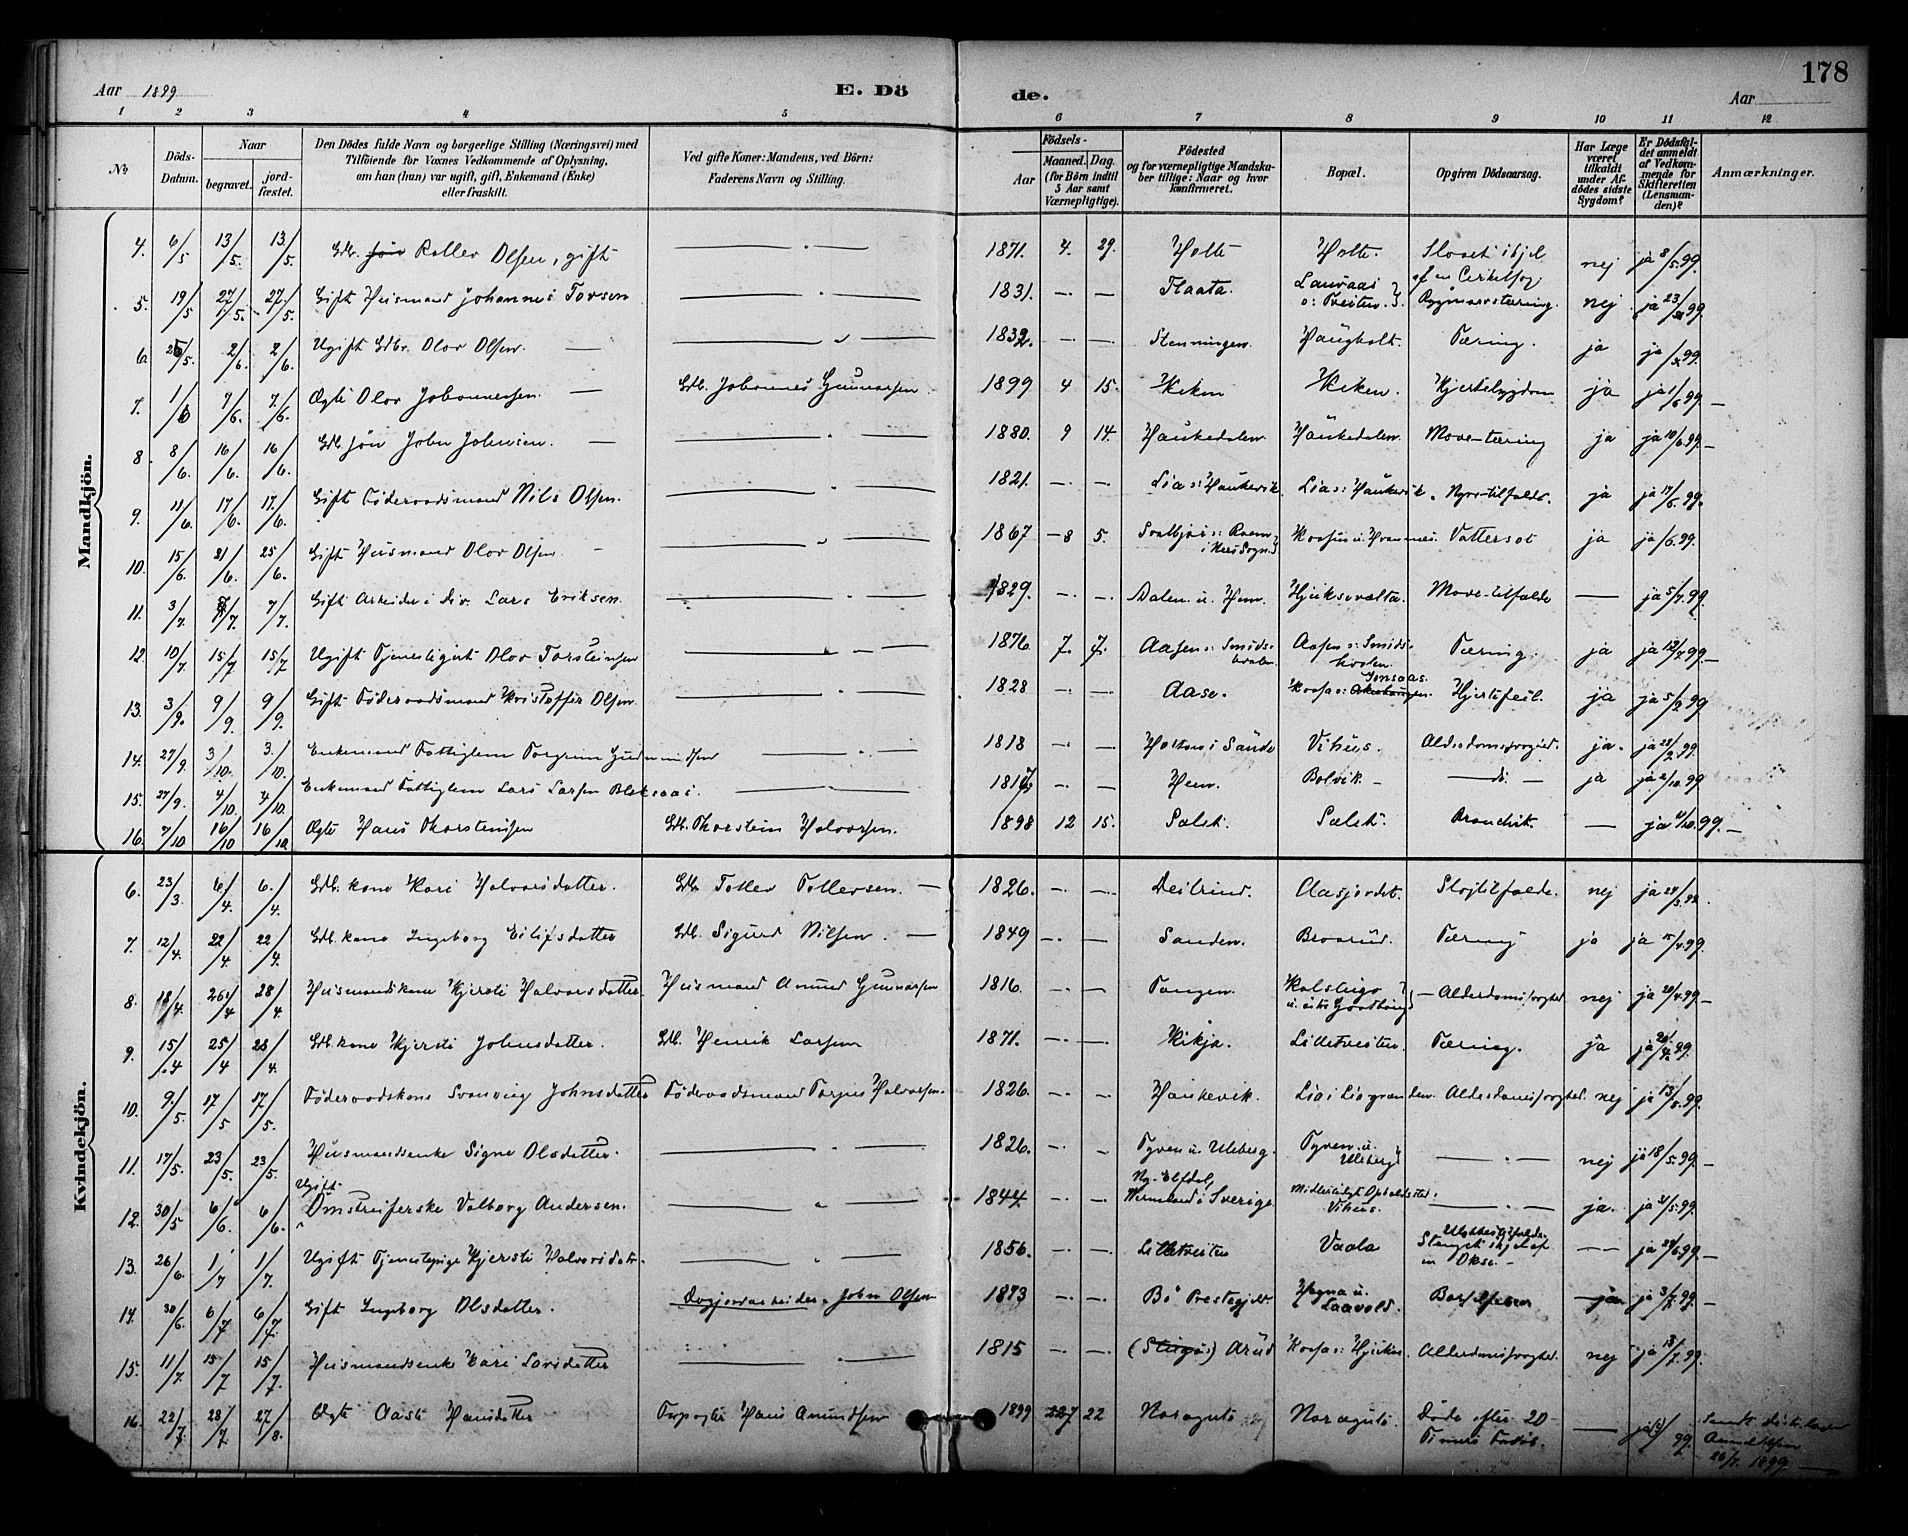 178
Aar 1899
E. Dö
de.
Aar
1 2 3 4 5 6 7 8 9 10 11 12
No
Döds-Datum.
Naar
begravet.
jord-fæstet.
Den Dödes fulde Navn og borgerlige Stilling (Næringsvei) med
Tilföiende for Voxnes Vedkommende af Oplysning,
om han (hun) var ugift, gift, Enkemand (Enke)
eller fraskilt.
Ved gifte Koner: Mandens, ved Börn:
Faderens Navn og Stilling.
Födsels-
Aar
Maaned. Dag.
(for Börn indtil
5 Aar samt
Værnepligtige).
Födested
og for værnepligtige Mandska-
ber tillige: Naar og hvor
konfirmeret.
Bopæl.
Opgiven Dödsaarsag.
Har Læge
været
tilkaldt
under Af-
dödes sidste
Sygdom?
Er Dödsfal-
det anmeldt
af Vedkom-
mende for
Skifteretten
(Lensman-
den)?
Anmærkninger.
Mandkjön.
4. 6/5 13/5. 13/5. Gdb. Rollev Olsen, gift 1871. 4. 29. Holte Holte. Slaaet ihjel af en Cirkelsag nej ja 8/5 99.
5. 19/5 27/5. 27/5. Gift Husmand Johannes Torsen 1831. Flaata. nej ja 23/5 99
6. 2/6. 2/6. Ugift Gdbr. Olav Olsen. 1832. Stenningen. Haugholt. Tæring. ja ja 99.
7. 1/6 7/6. 7/6. Ægte Olav Johannessen. Gdb. Johannes Gunnarsen 1899 4 15. Kiken Kiken. Hjertesygdom ja ja 1/6 99.
8. 8/6. 16/6. 16/6. Gdb. søn John Johnsen. 1880. 9 14. Haukedalen Haukedalen. Mave-tæring ja ja 10/6 99.
9. 11/6. 17/6. 17/6. Gift Føderaadsmand Nils Olsen. 1821. Lia s: Haukevik Lia s: Haukevik. Nyre-tilfælde. ja ja 17/6. 99.
10. 15/6. 21/6. 25/6. Gift Husmand Olav Olsen 1867 8 5. Vattersot ja ja /6. 99.
11. 3/7. 7/7. 7/7. Gift Arbeider i Div. Lars Eriksen. 1829. Dalen u. Hem. Hjuksevælta. Mave-tilfælde ja 5/7. 99.
12. 10/7 15/7 15/7 Ugift Tjenestegut Olav Torsteinsen 1876 7. 7. Aasen s: Smids- Aasen s: Smids- Tæring. ja ja 12/7 99.
13. 3/9. 9/9. 9/9. Gift Føderaadsmand Kristoffer Olsen 1828 Aase. Jonsaas. Hjertefeil. ja ja 5/9 99
14. 27/9. 3/10. 3./10. Enkemand Fattiglem Torgrim Gudmundsen 1818 Holtan i Sande Vihus. ja. ja 28/9 99.
15. 27/9. 4/10. 4/10. Enkemand Fattiglem Lars Larsen Bleksaas. 1817 Hem. Bolvik. do ja ja 2/10 99
16. 7/10 16/10 16/10. Ægte Hans Thorsteinsen Gdb. Thorstein Halvorsen. 1898 12 15. Sælet Sælet. Bronchit. ja 11/10. 99.
Kvindekjön.
6. 23/3. 6/4. 6./4. Gdb. kone Kari Halvorsdatter. Gdb. Tollev Tollevsen. 1826. Deilrind. Aasjordet. nej ja 24/3. 99.
7. 12/4. 22/4. 22/4. Gdb. kone Ingeborg Eilifsdatter Gdb. Sigurd Nilsen. 1849 Sanden. Braarud. Tæring ja ja 15/4 99.
8. 18/4. 26/4 28/4. Husmandskone Kjersti Halvorsdatter. Husmand Amund Gunnarsen 1816. Tangen. Alderdomssvaghed nej ja 20/4 99.
9. 15/4 25/4 28/4. Gdb. kone Kjersti Johnsdatter. Gdb. Henrik Larsen 1871. Kikja. Litletveiten. Tæring. ja ja 99.
10. 9/5. 17/5 17/5. Føderaadskone Svanvieg Johnsdatter Føderaadsmand Torjus Halvorsen. 1826. Haukevik. Lia i Liagrænden. Alderdomssvaghed. nej ja 13/5. 99.
11. 17/5. 23/5. 23/5. Husmandsenke Signe Olsdatter. 1826. Tyven u. Uleberg. Tyven u. Uleberg nej ja 18/5. 99.
12. 30/5 6/6 6/6. Ugift Omstreiferske Valborg Andersen. 1844. Ny-Elfdal, Vermland i Sverige. Midlertidigt Opholdssted: Vihus. ja. ja 31/5. 99.
13. 26/6. 1/7 1/7. Ugift Tjenestepige Kjersti Halvorsdatr. 1856. Litletveiten Vaala Ulykkestilfælde. Stanget ihjel af en Okse. ja 28/6 99.
14. 30/6 6/7 6/7. Gift Ingeborg Olsdatter. Dagjorarbeider. John Olsen 1873 Bö Prestegjeld. Hegna u. Laavold. Barselfeber ja ja 3/7. 99.
15. 11/7. 15/7 15/7. Husmandsenke Kari Larsdatter 1815 Alderdomssvaghed. nej ja 13/7. 99.
16. 22/7. 28/7. 27/8. Ægte Aaste Hansdatter Hans Amundsen 1899 7 22 Noragutu Noragutu. Døde efter 20 Timers ja 99.
26/7. 1899